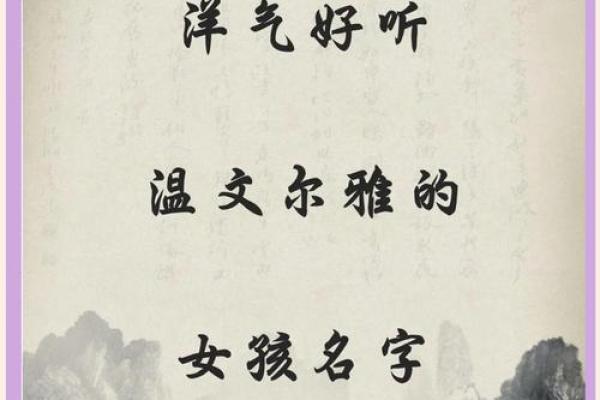 洋气好听
温文尔雅的
女孩名字